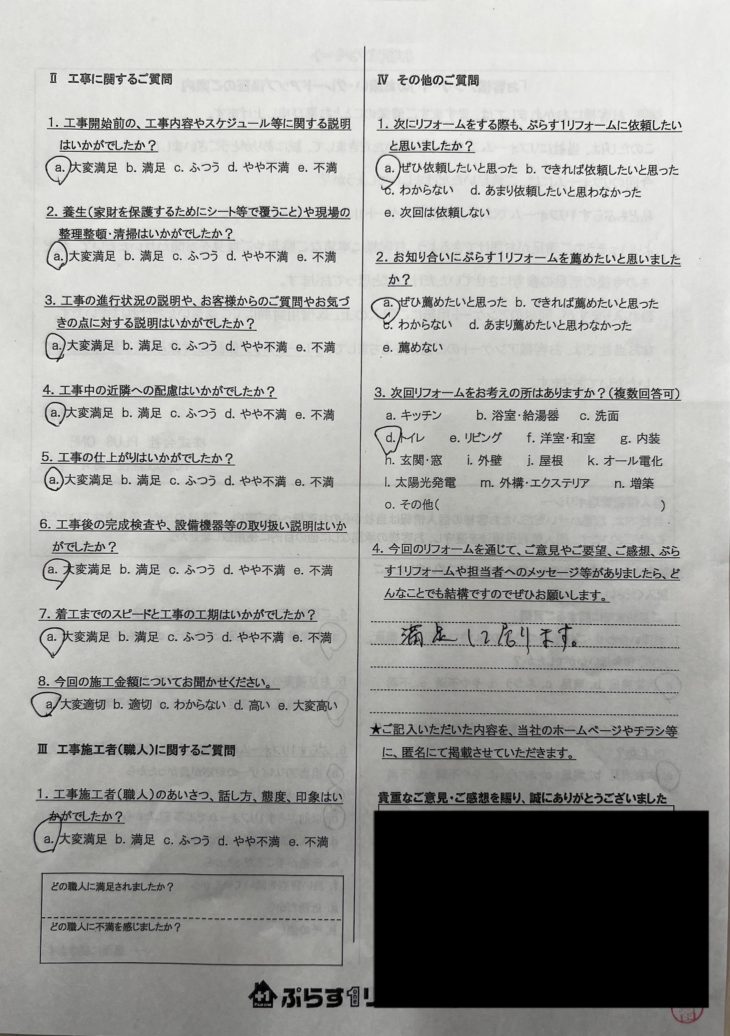 Ⅱ 工事に関するご質問
1. 工事開始前の、工事内容やスケジュール等に関する説明
はいかがでしたか?
a. 大変満足 b. 満足 c. ふつう d. やや不満 e. 不満
2. 養生(家財を保護するためにシート等で覆うこと)や現場の
整理整頓・清掃はいかがでしたか?
a. 大変満足 b. 満足 c. ふつう d. やや不満 e. 不満
3. 工事の進行状況の説明や、お客様からのご質問やお気づ
きの点に対する説明はいかがでしたか?
a. 大変満足 b. 満足 c. ふつう d. やや不満 e. 不満
4. 工事中の近隣への配慮はいかがでしたか?
a. 大変満足 b. 満足 c. ふつう d. やや不満 e. 不満
5. 工事の仕上がりはいかがでしたか?
a. 大変満足 b. 満足 c. ふつう d. やや不満 e. 不満
6. 工事後の完成検査や、設備機器等の取り扱い説明はいか
がでしたか?
a. 大変満足 b. 満足 c. ふつう d. やや不満 e. 不満
7. 着工までのスピードと工事の工期はいかがでしたか?
a. 大変満足 b. 満足 c. ふつう d. やや不満 e. 不満
8. 今回の施工金額についてお聞かせください。
a. 大変適切 b. 適切 c. わからない d. 高い e. 大変高い
Ⅲ 工事施工者(職人)に関するご質問
1. 工事施工者(職人)のあいさつ、話し方、態度、印象はい
かがでしたか?
a. 大変満足 b. 満足 c. ふつう d. やや不満 e. 不満
どの職人に満足されましたか?
どの職人に不満を感じましたか?
Ⅳ その他のご質問
1. 次にリフォームをする際も、ぷらす1リフォームに依頼したい
と思いましたか?
a. ぜひ依頼したいと思った b. できれば依頼したいと思った
c. わからない d. あまり依頼したいと思わなかった
e. 次回は依頼しない
2. お知り合いにぷらす1リフォームを薦めたいと思いました
か?
a. ぜひ薦めたいと思った b. できれば薦めたいと思った
c. わからない d. あまり薦めたいと思わなかった
e. 薦めない
3. 次回リフォームをお考えの所はありますか?(複数回答可)
a. キッチン b. 浴室・給湯器 c. 洗面
d. トイレ e. リビング f. 洋室・和室 g. 内装
h. 玄関・窓 i. 外壁 j. 屋根 k. オール電化
l. 太陽光発電 m. 外構・エクステリア n. 増築
o. その他( )
4. 今回のリフォームを通じて、ご意見やご要望、ご感想、ぷら
す1リフォームや担当者へのメッセージ等がありましたら、ど
んなことでも結構ですのでぜひお願いします。
満足して居ります。
★ご記入いただいた内容を、当社のホームページやチラシ等
に、匿名にて掲載させていただきます。
貴重なご意見・ご感想を賜り、誠にありがとうございました
+1 ぷらす1リ